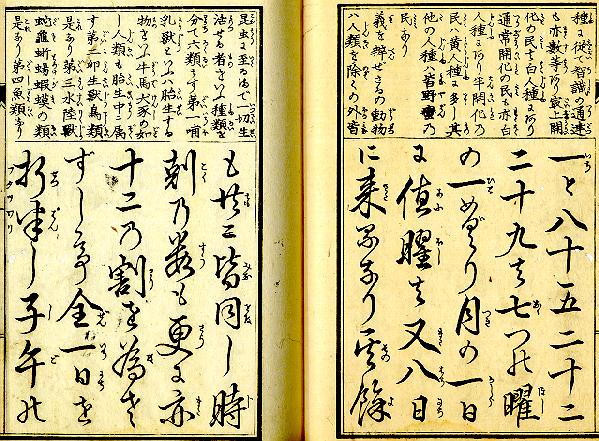 種に従て智識の通達
も亦数等あり最上開
化の民を白人種にあり
通常開化の民も亦白
人種にあり半開化の
民ハ黄人種に多し其
他の人種ハ皆野蛮の
民あり
義を辨せざるの動物
ハ人類を除くの外皆
一と八十五二十二
二十九ハ七つの曜
の一めぐり月の一日
に値曜ハ又八日
に来るなり其餘
昆虫に至るまで一切生
活せる者をいふ種類を
分て六類とす第一哺
乳獣といふハ胎生する
物をいふ牛馬犬豕の如
し人類も胎生中に属
す第二卵生獣鳥類
是あり第三水陸獣
蛇龜蜥蜴蝦蟆の類
是あり第四魚類あり
も共に皆同し時
刻乃数も更に亦
十二乃割を為さ
ずし全一日を
折半し子午の